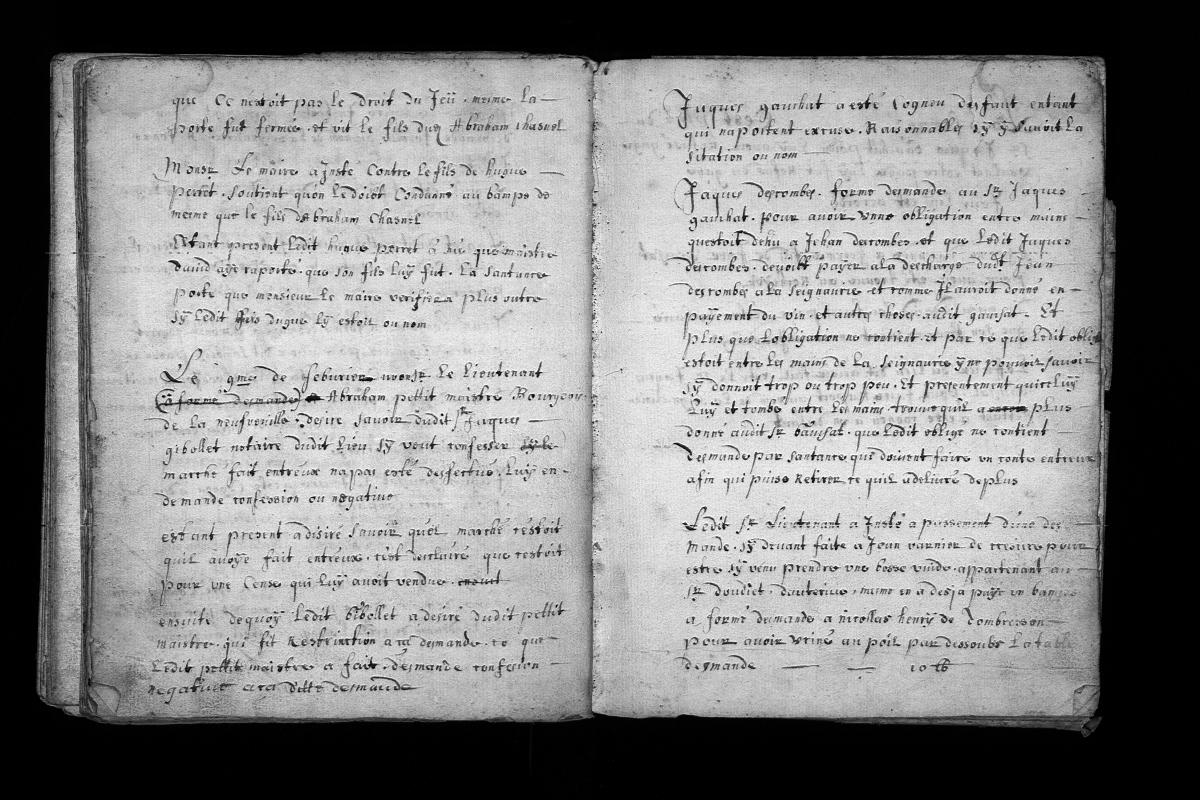 que Ce nestoit pas le droit du Jeü . meme la
porte fut fermée . et vit le fils duq Abraham Chasnel
Monsr Le maire a Insté Contre le fils de hugue
perret . soutient quon le doist Condanné au bamps de
meime que le fils dAbraham Chasnel
Estant present ledit hugue perret à nié que maistre
david aye raporté . que son fils luy fut . La santance
porte que monsieur le maire verifiera plus outre
sy ledit fils dugue ly estoit ou nom
Le 9me de feburier monsr le lieutenant
a formé desmande Abraham pettit maistre Bourgeois
de la neufveuille desire savoir dudit sr Jaques
gibollet notaire dudit lieu sy veut confesser sy le
marché fait entreux na pas esté desfectué . Luy en
demande confession ou negative
estant present a desiré savoir quel marché cestoit
quil avoye fait entreux . cest desclairé que cestoit
pour une Cense qui luy avoit vendue . ensuit
ensuite dequoÿ ledit Gibollet a desiré dudit pettit
maistre . qui fit Restrinction a sa demande . ce que
ledit pettit maistre a fait . desmande confesion
negative a sa ditte desmande
Jaques gauchat a esté Cogneu desfaut entant
qui naportent excuse . Raisonnables sy ÿ savoit la
sitation ou nom
Jaques descombes . forme desmande au sr Jaques
gauchat . pour avoir unne obligation entre mains
questoit dehu a Jehan descombes . et que ledit Jaques
descombes . devoist payer a la descharge dudt Jean
descombes a la seignaurie et comme Il auroit donné en
payement du vin . et autres choses . audit gausat . Et
plus que lobligation ne contient . et par ce que ledit obligé
estoit entre les mains de la seignaurie ÿ ne pouvoir savoir
sy donnoit trop ou trop peu . Et presentement quicelluÿ
luÿ et tombé entre les mains . trouve quil a plus
donné audit sr Gausat . que ledit obligé ne contient
desmande par santance qui doivent faire un conte entreux
afin qui puise Retirer ce quil a delivré de plus
Ledit sr Lieutenant a Insté a passement dune des
mande . sy devant faite a Jean varnier de cresier pour
estre sy venu prendre une bosse vuide . appartenant au
sr doudiet . dauterive , meme en a desja payé un bamps
a formé demande a nicollas henry de Dombresson
pour avoir uriné au poil par dessoubs la table
desmande — — 10 lb